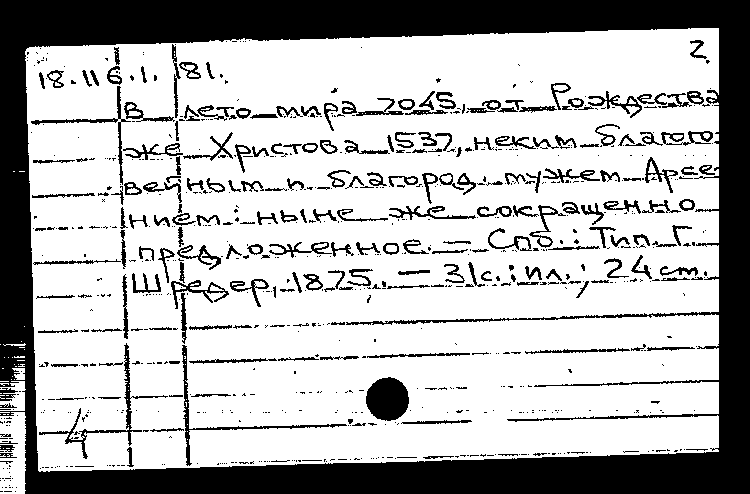 2
18.116.1.181.
В лето мира 7045, от Рождества
же Христова 1537, неким благого-
вейным и благород. мужем Арсе-
нием: ныне же сокращенно
предложенное. — Спб.: Тип. Г.
Шредер, 1875. — 31с.: ил.; 24 см.
4